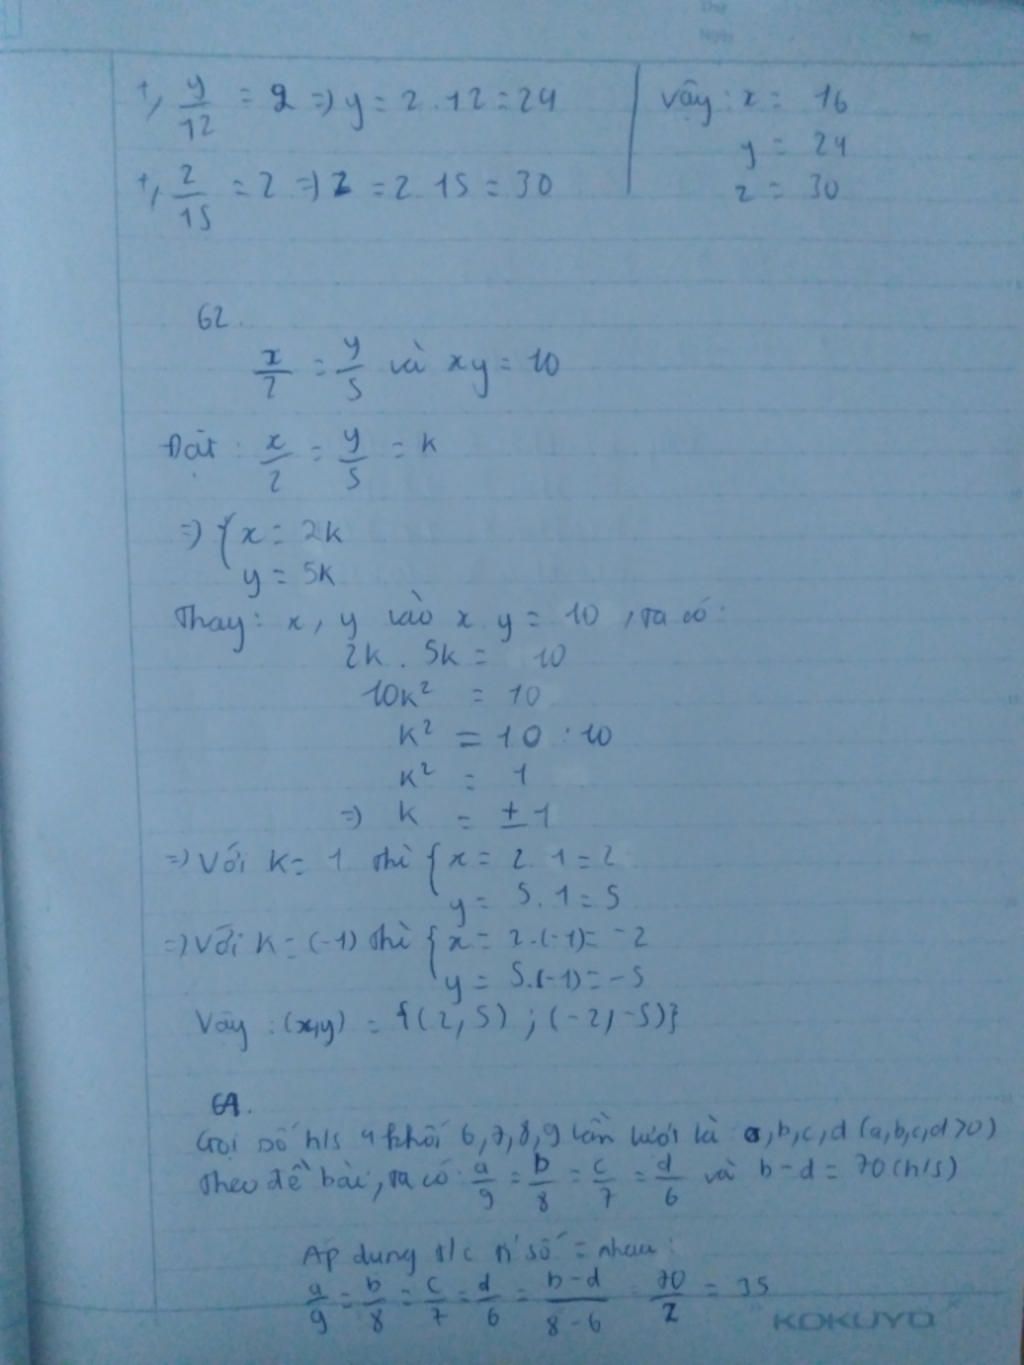 +, y/12 = 2 => y = 2 . 12 = 24
+, z/15 = 2 => z = 2 . 15 = 30
Vậy : x = 16
y = 24
z = 30
62.
x/2 = y/5 và xy = 10
Đặt : x/2 = y/5 = k
=> { x = 2k
y = 5k
Thay : x, y vào x.y = 10, ta có :
2k . 5k = 10
10k² = 10
k² = 10 : 10
k² = 1
=> k = ±1
=> Với k = 1 thì { x = 2.1 = 2
y = 5.1 = 5
=> Với k = (-1) thì { x = 2.(-1) = -2
y = 5.(-1) = -5
Vậy : (x,y) = {(2,5) ; (-2,-5)}
64.
Gọi số h/s 4 khối 6,7,8,9 lần lượt là a,b,c,d (a,b,c,d>0)
Theo đề bài, ta có : a/9 = b/8 = c/7 = d/6 và b-d = 70 (h/s)
Áp dụng t/c số = nhau :
a/9 = b/8 = c/7 = d/6 = b-d/8-6 = 70/2 = 35
KOKUYO